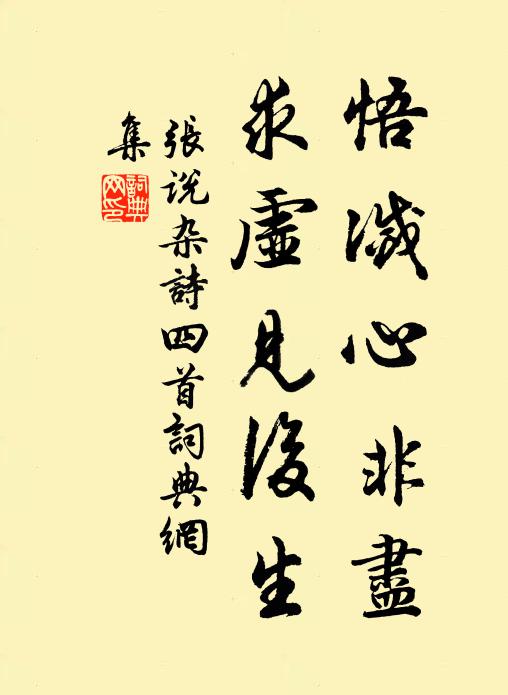 悟滅心非盡
求虛見後生
張说杂詩四首詞典網
集
詞典网印